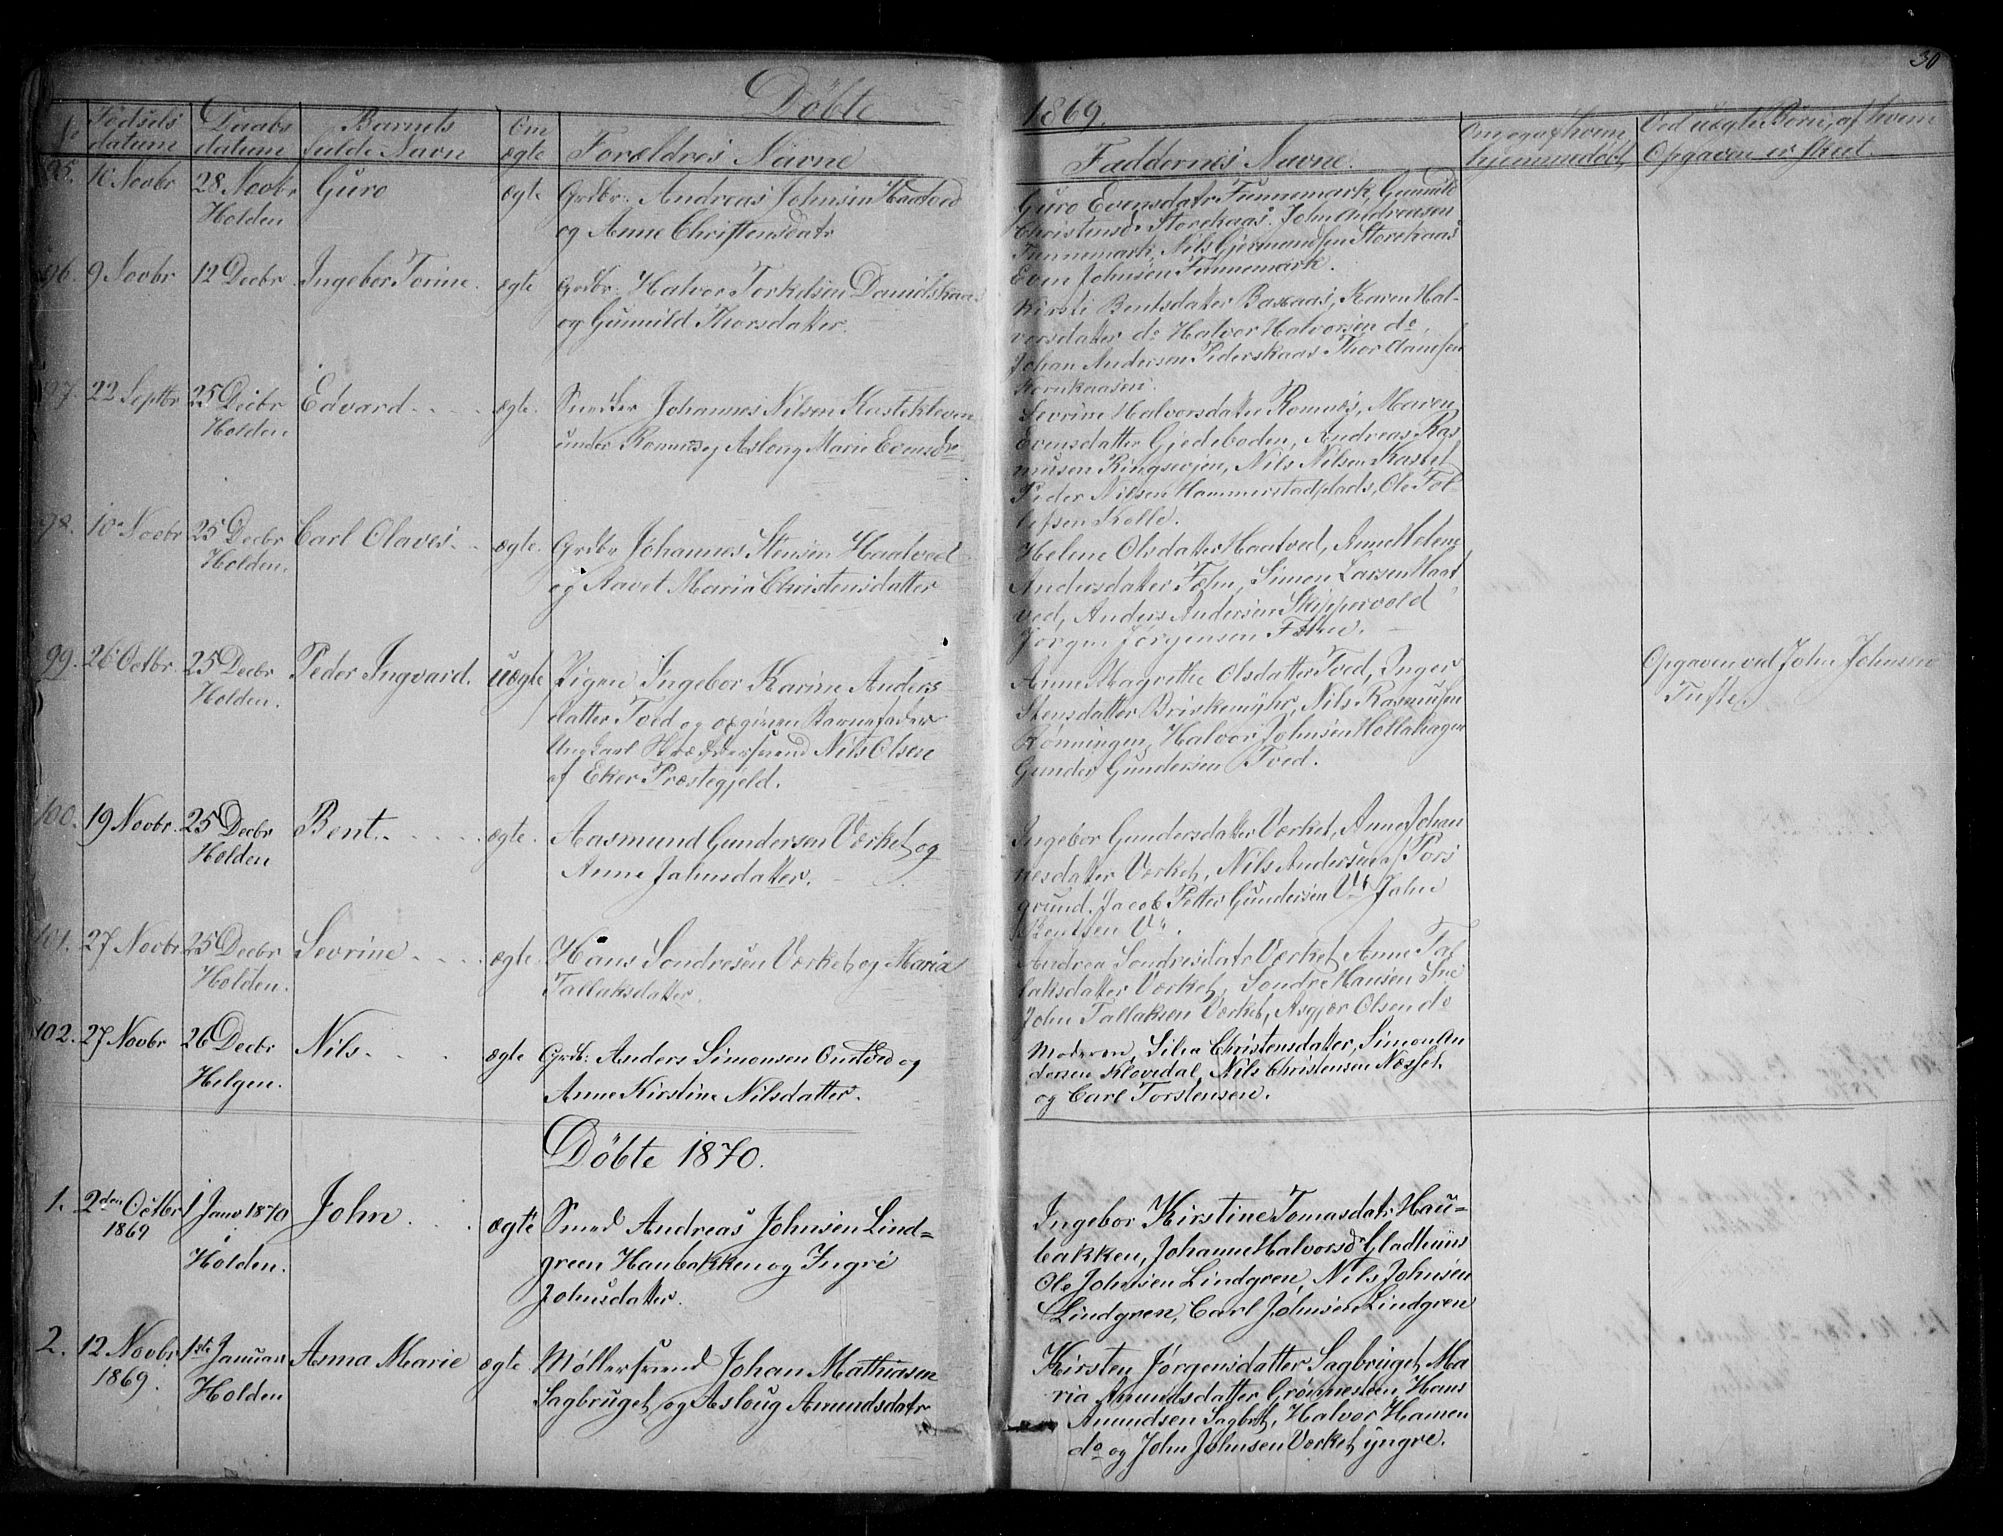 30
Döbte
1869.
No
Födsels
datum
Daabs
datum
Barnets
fulde Navn
Om
ægte
Forældres Navne
Faddernes Navne.
Om og af hvem
hjemmedøbt,
Ved uægte Börn, af hvem
Opgaven er skeet.
95. 10 Novbr 28 Novbr Guro ægte Grdbr: Andreas Johnsen Haatved
Holden og Anne Christensdatr
Guro Evensdatr Funnemark, Gunnild
Christensd. Storekaas. John Andreasen
Funnemark, Nils Gjermundsen Storekaas
Even Johnsen Funnemark.
96. 9 Novbr 12 Decbr Ingebor Torine. ægte Grdbr: Halvor Torkelsen Damelskaas
og Gunnild Thorsdatter.
Kirsti Bentsdatter Baskaas, Karen Hal-
vorsdatter do Halvor Halvorsen do,
Johan Andersen Pederskaas Thor Aanesen
Kornkaasen.
97. 22 Septbr 25 Decbr Edvard ægte. Johannes Nilsen Kastekleven
Holden under Romnes og Aslong Marie Evensdr
Sevrine Halvorsdatter Romnes, Maren
Evensdatter Gjedeboden, Andreas Ras
musen Ringsevjen, Nils Nilsen Kastet
Peder Nilsen Hammerstadplads, Ole Tol-
lefsen Kolle.
98. 10 Novbr 25 Decbr Carl Olaves ægte. Grdbr Johannes Stensen Haatved
Holden. og Maria Christensdatter
Helene Olsdatter Haatved, Anne Helene
Andersdatter Fehn, Simon Larsen Haat
ved, Anders Andersen Skippervold
Jørgen Jørgensen Fehn.
99. 26 Octbr. 25 Decbr Peder Ingvard. uægte Pigen Ingebor Karine Anders
Holden. datter Tved og opgiven Barnefader
Ungkarl Nils Olsen
af Eker Præstegjeld.
Anne Magrethe Olsdatter Tved, Inger
Stensdatter Briskemyhr, Nils Rasmusen
Rønningen, Halvor Johnsen Hollahagen
Gunder Gundersen Tved.
Opgaven ved John Johnsen
Tufte.
100. 19 Novbr. 25 Decbr Bent. ægte. Aasmund Gundersen Værket og
Holden Anne Jahnsdatter.
Ingebor Gundersdatter Værket, Anne Johan
nesdatter Værket, Nils Andersen af Pors
grund. Jacob Petter Gundersen Vk Jahn
Bentsen Vk.
101. 27 Novbr 25 Decbr Sevrine ægte. Hans Sondresen Værket og Maria
Holden. Tallaksdatter.
Andrea Sondresdatr Værket Anne Tal
laksdatter Værket, Sondre Hansen
John Tallaksen Værket, Asgjer Olsen do
102. 27 Novbr 26 Decbr Nils. ægte Grdb: Anders Simonsen Omtved og
Helgen. Anne Kirstine Nilsdatter.
Moderen, Silia Christensdatter, Simon An
dersen Klovedal, Nils Christensen Næsset.
og Carl Torstensen.
Döbte 1870.
1. 2den Octbr 1 Janr 1870 John ægte Smed Andreas Johnsen Lind=
1869 i green Haubakken og Ingri
Holden. Johnsdatter.
Ingebor Kirstine Tomasdatr Hau=
bakken, Johanne Halvorsdr Gladhuus
Ole Johnsen Lindgren, Nils Johnsen
Lindgren, Carl Johnsen Lindgren
2. 12 Novbr 1ste Januar Anna Marie ægte Møllersvend Johan Mathiasen
1869. Holden Sagbruget og Asloug Amundsdatr
Kirsten Jørgensdatter Sagbruget, Ma
ria Amundsdatter Grønnesteen, Hans
Amundsen Sagbrt, Halvor Hansen
do og John Johnsen Værket yngre.